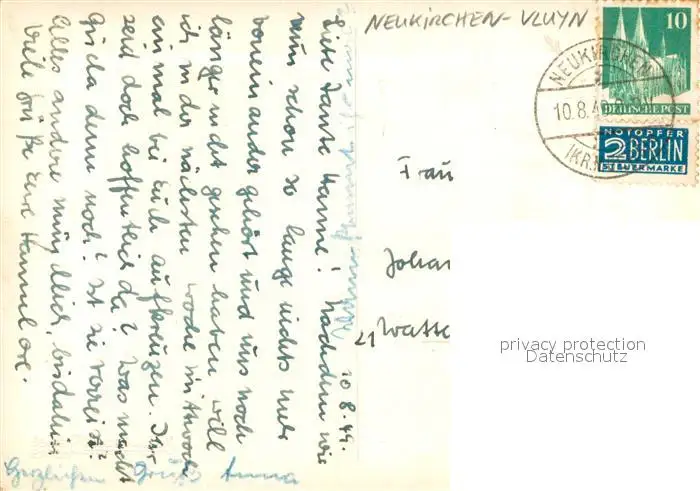 NEUKIRCHEN-VLUYN
10
DEUTSCHE POST
NEUKIRCHEN
10.8.4
(KR.
NOTOPFER
2 BERLIN
STEUERMARKE
10.8.49.
Liebe Tante Hanne! Nachdem wir
nun schon so lange nichts mehr
voneinander gehört und uns noch
länger nicht gesehen haben, will
ich in der nächsten Woche Mittwoch
einmal bei Euch aufkreuzen. Ihr
seid doch hoffentlich da? Was macht
Gisela denn noch? Ist sie verreist?
Alles andere mündlich, bis dahin
viele Grüße Eure Hannelore.
Herzlichen Gruß Anna
Frau
Johan
21 Watte
privacy protection
Datenschutz